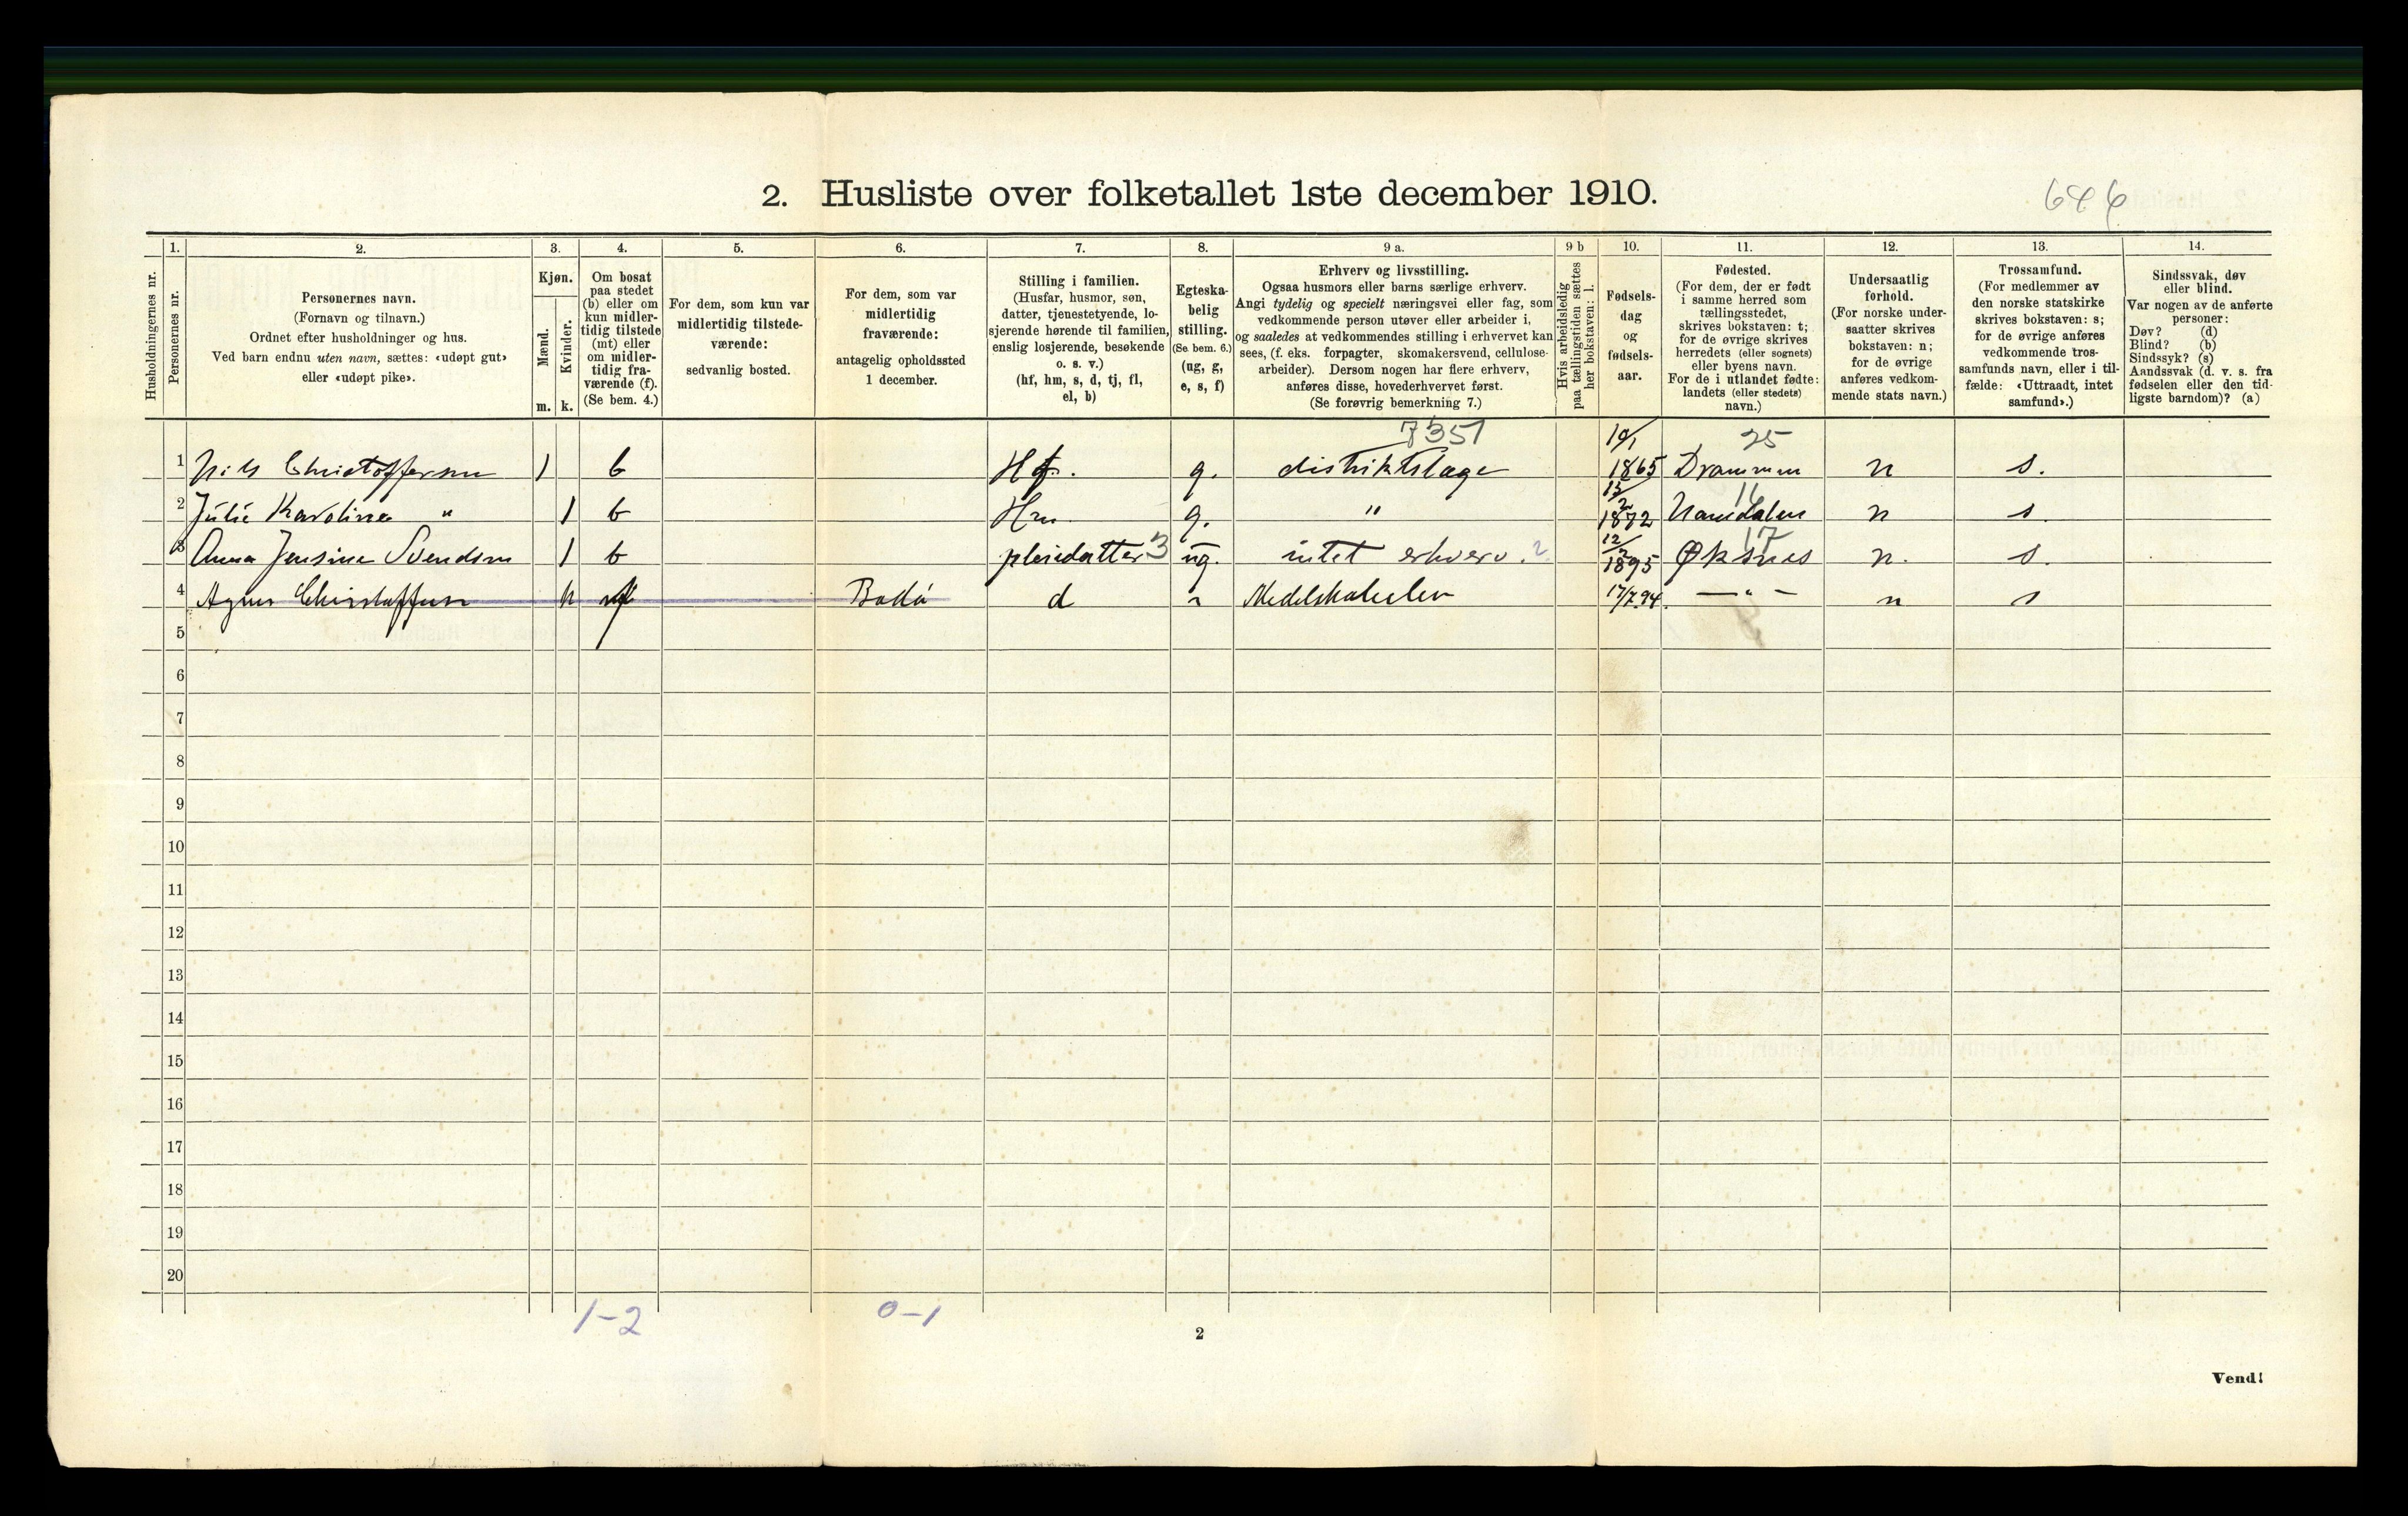 2. Husliste over folketallet 1ste december 1910.
Husholdningernes nr.
1. Personernes nr.
2. Personernes navn.
(Fornavn og tilnavn.)
Ordnet efter husholdninger og hus.
Ved barn endnu uten navn, sættes: «udøpt gut»
eller «udøpt pike».
3. Kjøn.
Mænd. m.
Kvinder. k.
4. Om bosat
paa stedet
(b) eller om
kun midler-
tidig tilstede
(mt) eller
om midler-
tidig fra-
værende (f).
(Se bem. 4.)
5. For dem, som kun var
midlertidig tilstede-
værende:
sedvanlig bosted.
6. For dem, som var
midlertidig
fraværende:
antagelig opholdssted
1 december.
7. Stilling i familien.
(Husfar, husmor, søn,
datter, tjenestetyende, lo-
sjerende hørende til familien,
enslig losjerende, besøkende
o. s. v.)
(hf, hm, s, d, tj, fl,
el, b)
8. Egteska-
belig
stilling.
(Se bem. 6.)
(ug, g,
e, s, f)
9 a. Erhverv og livsstilling.
Ogsaa husmors eller barns særlige erhverv.
Angi tydelig og specielt næringsvei eller fag, som
vedkommende person utøver eller arbeider i,
og saaledes at vedkommendes stilling i erhvervet kan
sees, (f. eks. forpagter, skomakersvend, cellulose-
arbeider). Dersom nogen har flere erhverv,
anføres disse, hovederhvervet først.
(Se forøvrig bemerkning 7.)
9 b Hvis arbeidsledig
paa tællingstiden sættes
her bokstaven: l.
10. Fødsels-
dag
og
fødsels-
aar.
11. Fødested.
(For dem, der er født
i samme herred som
tællingsstedet,
skrives bokstaven: t;
for de øvrige skrives
herredets (eller sognets)
eller byens navn.
For de i utlandet fødte:
landets (eller stedets)
navn.)
12. Undersaatlig
forhold.
(For norske under-
saatter skrives
bokstaven: n;
for de øvrige
anføres vedkom-
mende stats navn.)
13. Trossamfund.
(For medlemmer av
den norske statskirke
skrives bokstaven: s;
for de øvrige anføres
vedkommende tros-
samfunds navn, eller i til-
fælde: «Uttraadt, intet
samfund».)
14. Sindssvak, døv
eller blind.
Var nogen av de anførte
personer:
Døv? (d)
Blind? (b)
Sindssyk? (s)
Aandssvak (d. v. s. fra
fødselen eller den tid-
ligste barndom)? (a)
7351 25
1 Nils Christoffersen 1 b Hf. g. distriktslæge 10/1 1865 Drammen n s.
2 Julie Karoline " 1 b Hm g. " 13/2 1872 Namdalen n s.
3 Anna Jensine Svendsen 1 b pleiedatter 3 ug. intet erhverv. 12/2 1895 Øksnes 17 n. s.
4 Agnes Christoffersen k f Bodø d Medelskoleelev 17/7 94. — " — n s
5
6
7
8
9
10
11
12
13
14
15
16
17
18
19
20
1-2 0-1
2
Vend!